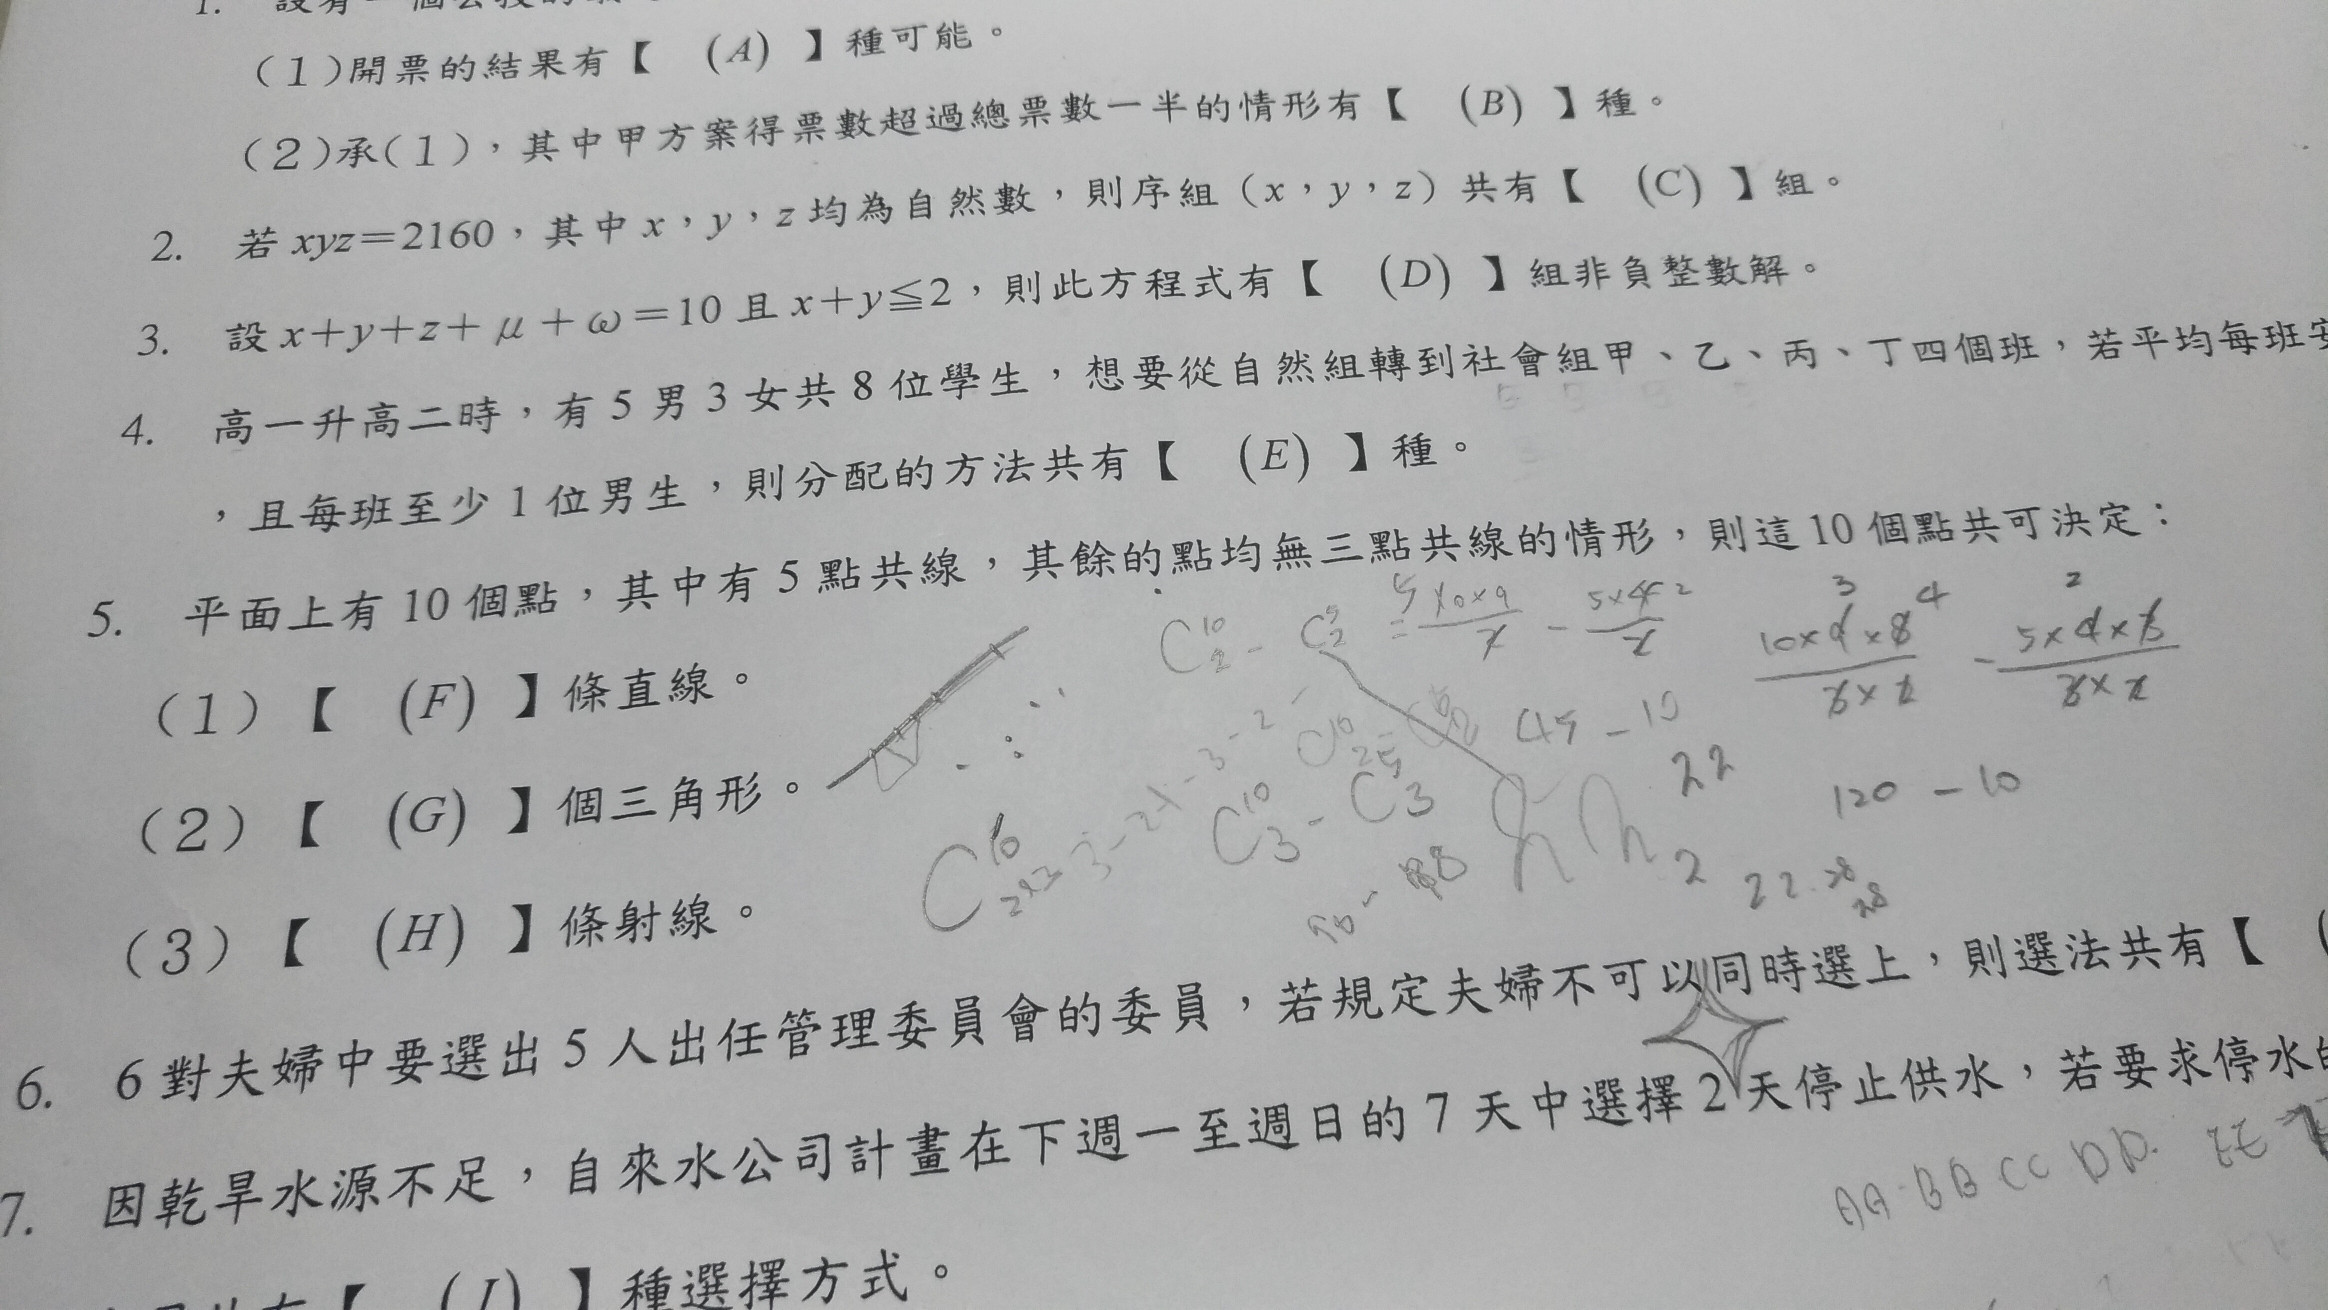 1. 設有一個
(1)開票的結果有【 (A) 】種可能。
(2)承(1)，其中甲方案得票數超過總票數一半的情形有【 (B) 】種。
2. 若 xyz＝2160，其中 x，y，z 均為自然數，則序組（x，y，z）共有【 (C) 】組。
3. 設 x＋y＋z＋μ＋ω＝10 且 x＋y≦2，則此方程式有【 (D) 】組非負整數解。
4. 高一升高二時，有 5 男 3 女共 8 位學生，想要從自然組轉到社會組甲、乙、丙、丁四個班，若平均每班安
，且每班至少 1 位男生，則分配的方法共有【 (E) 】種。
5. 平面上有 10 個點，其中有 5 點共線，其餘的點均無三點共線的情形，則這 10 個點共可決定：
(1)【 (F) 】條直線。
(2)【 (G) 】個三角形。
(3)【 (H) 】條射線。
45 - 10
22
120 - 10
6. 6 對夫婦中要選出 5 人出任管理委員會的委員，若規定夫婦不可以同時選上，則選法共有【 (
7. 因乾旱水源不足，自來水公司計畫在下週一至週日的 7 天中選擇 2 天停止供水，若要求停水的
AA BB CC DD EE
共有【 (J) 】種選擇方式。